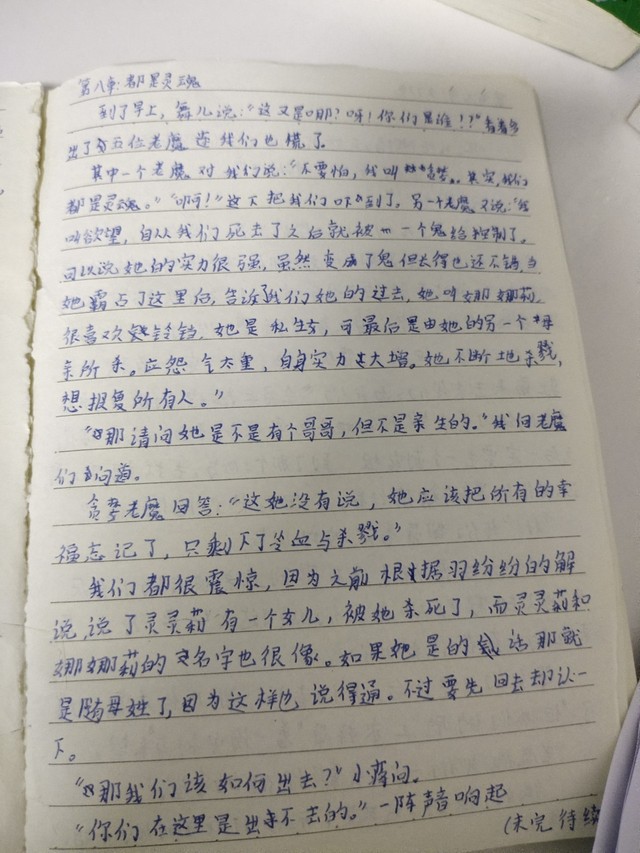 第八章:都是灵魂
到了早上，舞儿说:“这又是哪?呀!你们是谁!?”看着多
出了五位老魔 连我们也慌了
其中一个老魔 对 我们说:“不要怕，我叫贪婪。其实，我们
都是灵魂。”“啊!”这下把我们吓到了，另一个老魔又说:“我
叫欲望，自从我们死去了之后就被一个鬼给控制了。
可以说她的实力很强，虽然变成了鬼但长得也还不错，当
她霸占了这里后，告诉我们她的过去，她叫娜娜莉。
很喜欢铃铛，她是私生女，可最后是由她的另一个母
亲所杀。应怨气太重，自身实力大增。她不断地杀戮，
想报复所有人。”
“那请问她是不是有个哥哥，但不是亲生的。”我向老魔
们问道。
贪婪老魔回答:“这她没有说，她应该把所有的幸
福忘记了，只剩下了冷血与杀戮。”
我们都很震惊，因为之前根据羽纷纷的解
说，说了灵灵莉有一个女儿，被她杀死了，而灵灵莉和
娜娜莉的名字也很像。如果她是的话那就
是随母姓了，因为这样也说得通。不过要先回去却认一
下。
“那我们该如何出去?”小蒋问。
“你们在这里是出不去的。”一阵声音响起
(未完待续